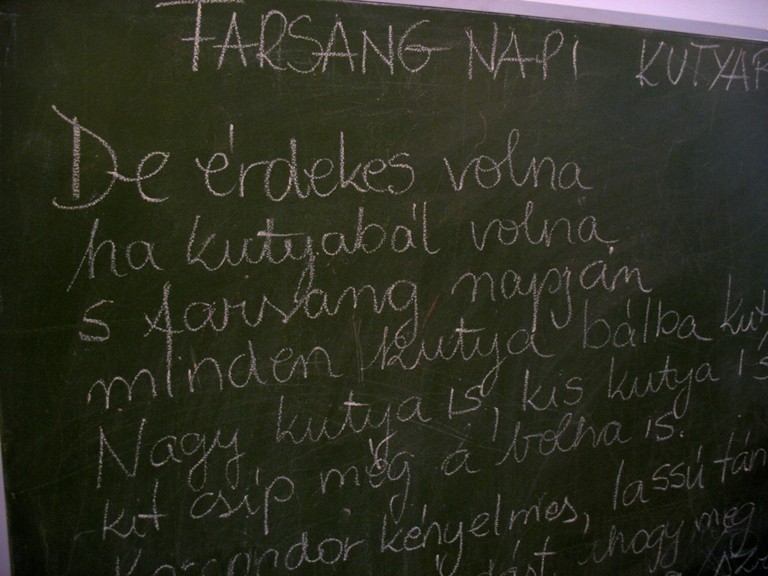 FARSANG NAPI KUTYAR
De érdekes volna
ha kutyabál volna
s farsang napján
minden kutya bálba kut
Nagy kutya is, kis kutya is
kit csíp még a bolha is.
kényelmes, lassú tán
hogy meg